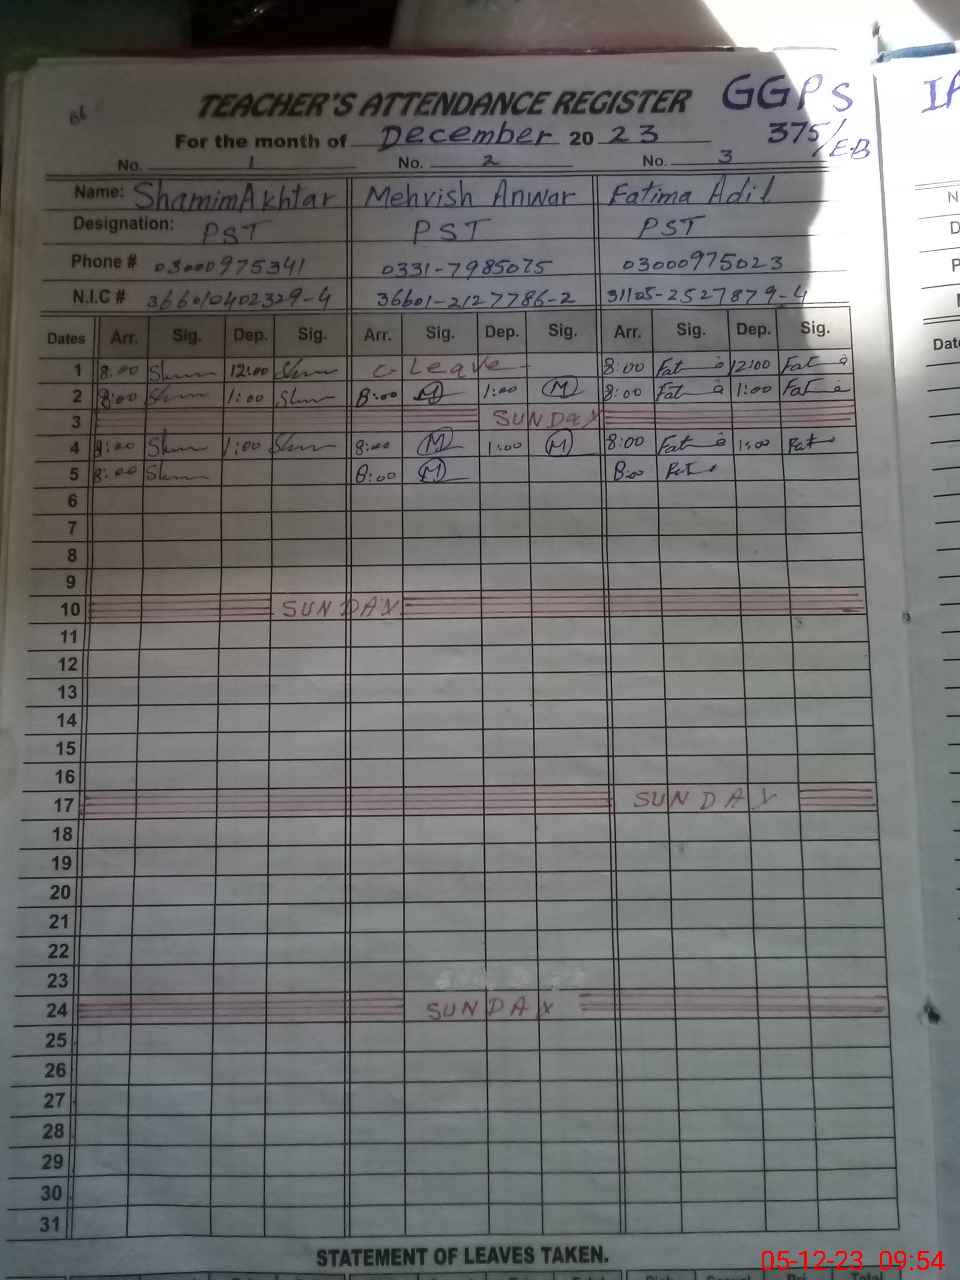 66
TEACHER'S ATTENDANCE REGISTER GGPS
For the month of December 20 23 375/E-B
No. 1 No. 2 No. 3
Name: Shamim Akhtar Mehvish Anwar Fatima Adil
Designation: PST PST PST
Phone # 03000975341 0331-7985075 03000975023
N.I.C # 366010402329-4 36601-2127786-2 31105-2527879-4
Dates Arr. Sig. Dep. Sig. Arr. Sig. Dep. Sig. Arr. Sig. Dep. Sig.
1 8:00 12:00 C-Leave 8:00 Fat 12:00 Fat
2 8:00 1:00 8:00 M 1:00 M 8:00 Fat 1:00 Fat
3 SUNDAY
4 8:00 1:00 8:00 M 1:00 M 8:00 Fat 1:00 Fat
5 8:00 8:00 M 8:00 Fat
6
7
8
9
10 SUNDAY
11
12
13
14
15
16
17 SUNDAY
18
19
20
21
22
23
24 SUNDAY
25
26
27
28
29
30
31
STATEMENT OF LEAVES TAKEN.
05-12-23 09:54